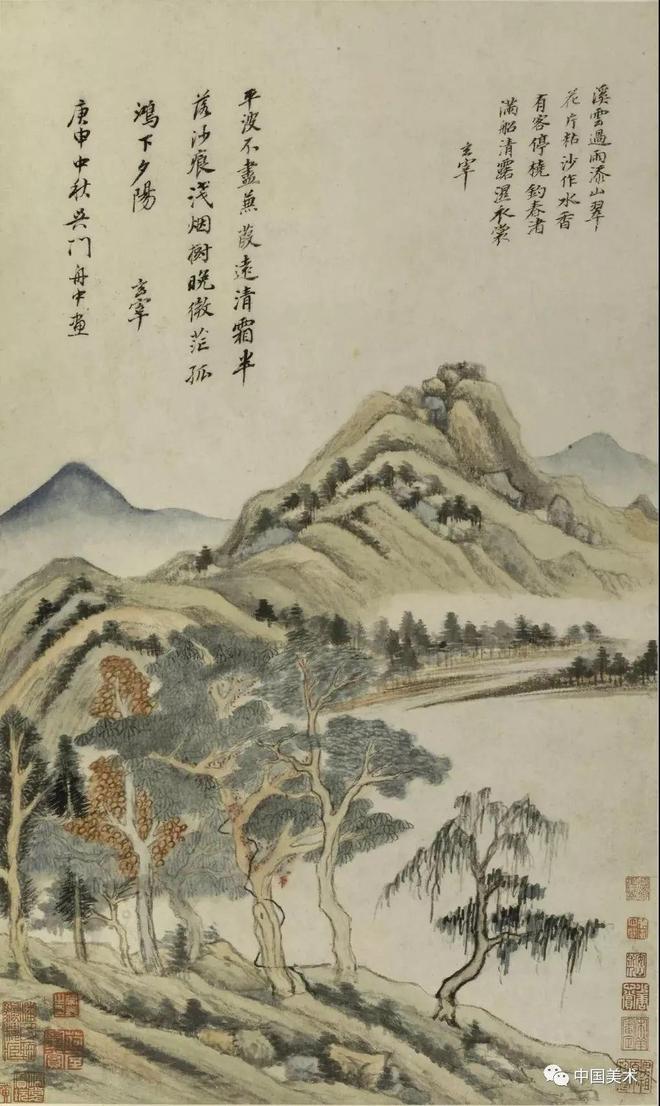 溪雲過雨添山翠
花片粘沙作水香
有客停橈釣春渚
滿船清露濕衣裳
玄宰
平波不盡蒹葭遠清霜半
落沙痕淺烟樹晚微茫孤
鴻下夕陽
玄宰
庚申中秋吳門舟中畫
中国美术